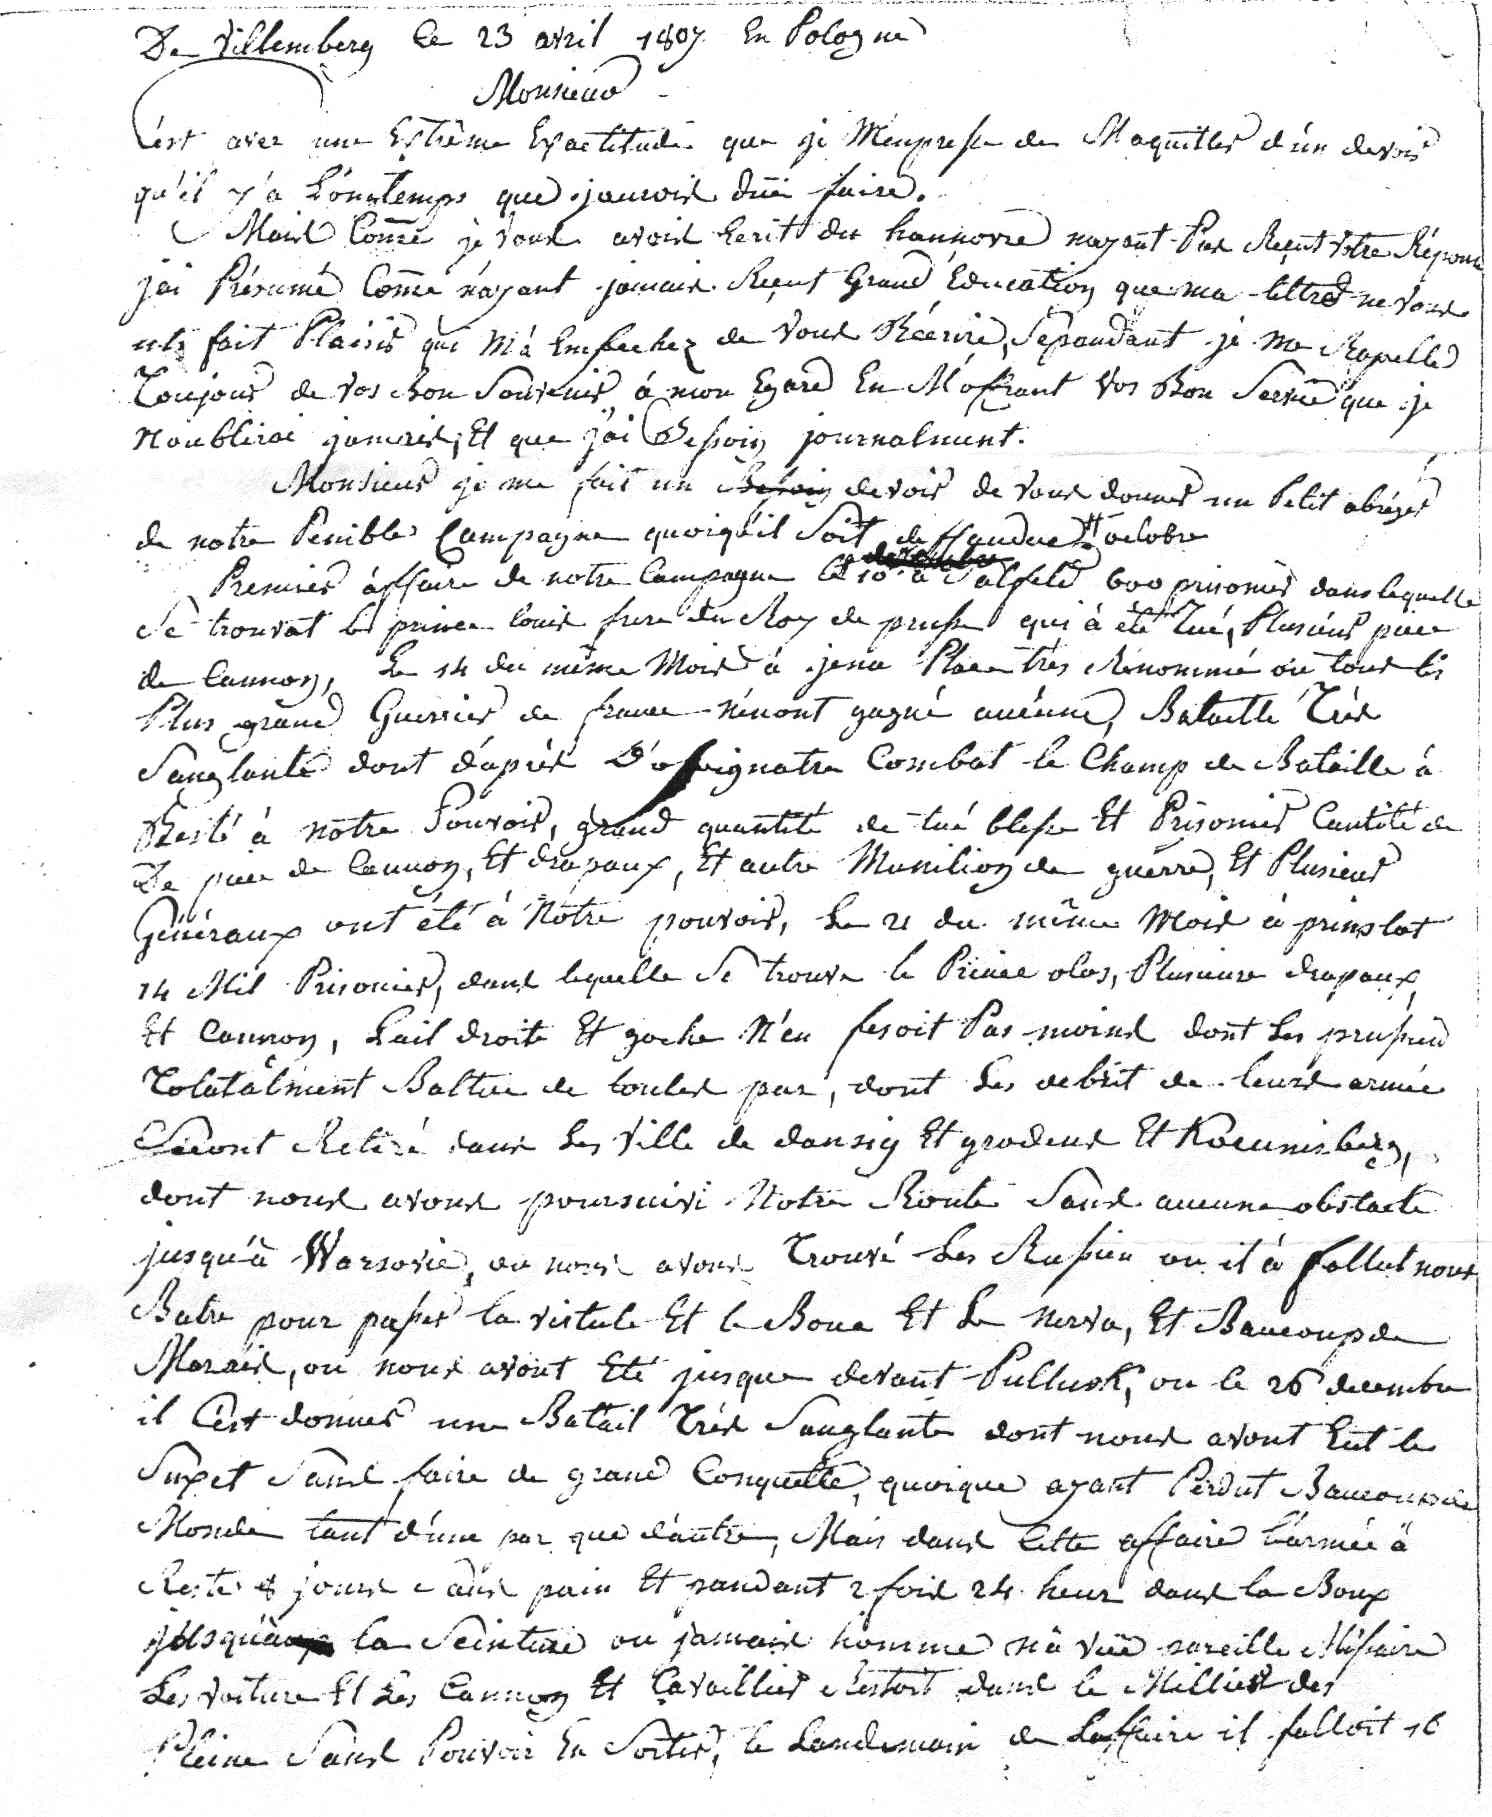 De Villemberg Le 23 avril 1807 En Pologne
Monsieur
C'est avec une Extrême Exactitude que je M'enpresse de Maquitter d'ún devoir
qu'il y'a Lóngtemps que jaurois dûe faire.
Mais Comme je vous avois Ecrit du hannovre nayant Pas Reçut votre Réponce
jai Présumé Comme náyant jamais Reçut Grand Éducation que ma lettre ne vous
fait Plaisir qui M'à Empechez de vous Réécrire, Sependant je me Rapelle
Toujours de vos Bon Souvenir, à mon Egard En M'offrant vos Bon Service que je
Noublirai jamais, Et que j'ai Bessoin journalment.
Monsieur je me fait un Bessoin devoir de vous donner un Petit abréger
de notre Penible Campagne quoiqu'il Soit deffendue octobre
Premier affaire de notre Campagne le 10 decembre à Salfeld 600 prisonier dans lequelle
Se trouvat le prince louis frere du Roy de prusse qui à été Tué, Plusieur piece
de Cannon, Le 14 du même Mois à jena Place très Renommé ou tous les
Plus grand Guerrier de france n'enont gagné aucune, Bataille Très
Sanglante dont d'après D'opignatre Combat le Champ de Bataille à
Resté à nôtre Pouvoir, grand quantité de tué blesse Et Prisonier Cantité de
De piece de Cannon, Et drapaux, Et autre Munition de guerre, Et Plusieur
Généraux ont été à Nôtre pouvoir, Le 21 du même Mois à prinslot
14 Mil Prisonier, dans lequelle Se trouve le Prince olos, Plusieure drapaux,
Et Cannon, Lail droite Et goche N'en fesoit Pas moins dont Les prussien
Totatalment Battue de toutes par, dont Les debrit de leurs armée
Seront Retiré dans Les Ville de dansig Et grodens Et Koeunisberg,
dont nous avons poursuivi Notre Route Sans aucune obstacle
jusqu'à Warsovie, ou nous avons Trouvé Les Russien ou il à fallut nous
Batre pour passer la vistule Et le Boue Et Le nerva, Et Baucoup de
Marais, ou nous avont Eté jusque devant Pullusk, ou le 26 decembre
il C'est donner une Batail Très Sanglante dont nous avont Eut le
Suxet Sans faire de grand Conquette, quoique ayant Perdut Baucoup de
Monde tant d'une par que d'autre, Mais dans Cette affaire l'armée à
Resté jours sans pain Et pandant 2 fois 24 heur dans la Boux
jusqu'à la Seinture ou jamais homme n'à vûe pareille Missaire
Les voiture Et Les Cannon Et Cavaillier Restoit dans le Millier des
Pleine Sans Pouvoir En Sortir, le Landemain de Laffaire il falloit 16